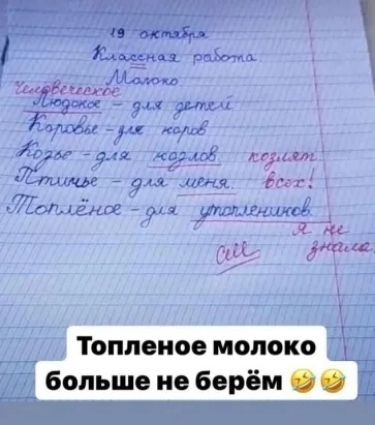 19 октября
Классная работа
Молоко
Человеческое
Людское – для детей
Коровье – для коров
Козье – для козлов. козлят
Птичье – для меня. всех!
Топлёное – для утоплеников.
Я не
знала.
См
Топленое молоко
больше не берём 🤣🤣